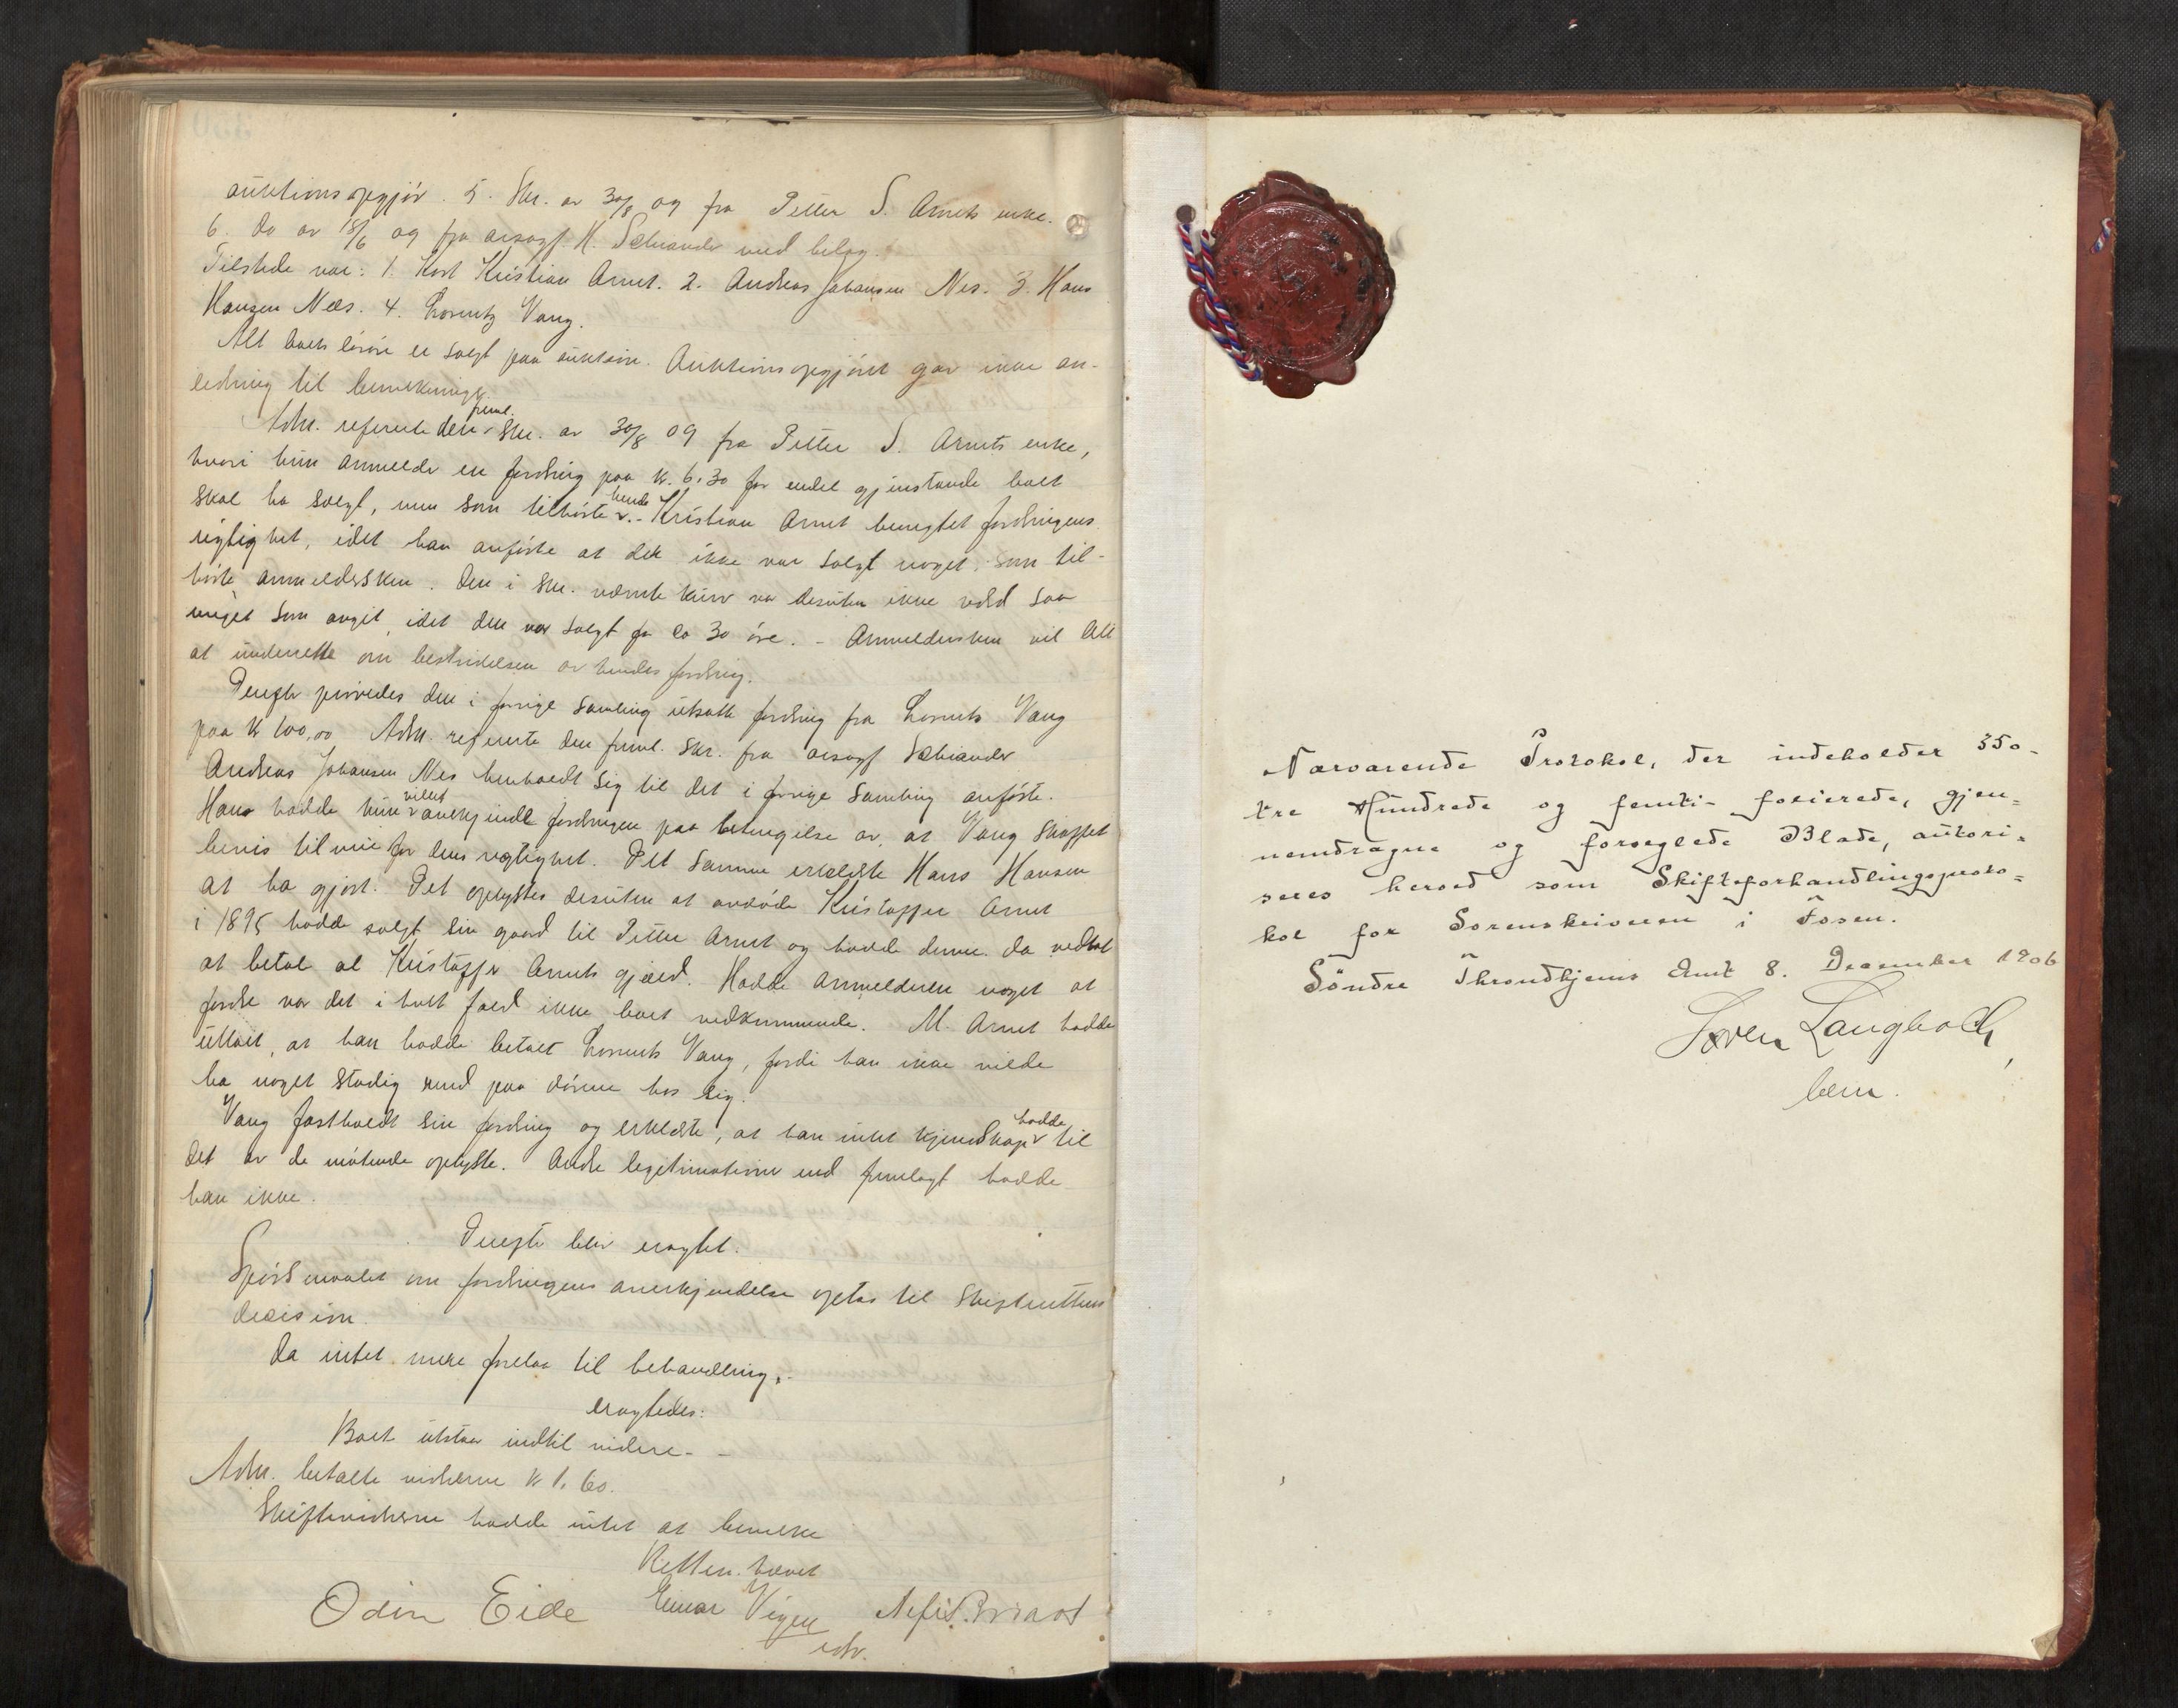 auktionsopgjør. 5. Skr. av 30/8 09 fra Petter S. Arnets enke.
6. do av 18/6 09 fra orsagf. H. Schiander med belæg.
Tilstede var: 1. Kristian Arnet. 2. Andreas Johansen Nes. 3. Hans
Hansen Næs. 4. Lorentz Vang.
Alt boets løsøre er solgt paa auktion. Auktionsopgjøret gav ikke an-
ledning til bemerkninger.
Adm. refererte den freml. skr. av 30/8 09 fra Petter S. Arnets enke,
hvori hun anmelder en fordring paa kr. 6.30 for endel gjenstande boet
skal ha solgt, men som tilhørte hende. - Kristian Arnet benegtet fordringens
rigtighet, idet han anførte at der ikke var solgt noget, som til-
hørte anmeldersken. Den i skr. nævnte kurv var desuten ikke værd saa
meget som angit, idet den var solgt for ca 30 øre. - Anmeldersken vil bli
at underrette om bestridelsen av hendes fordring.
Derefter prøvedes den i forrige samling utsatte fordring fra Lorents Vang
paa kr 100,00 Adm. refererte den freml. skr. fra orsagf Schiander
Andreas Johansen Nes henholdt sig til det i forrige samling anførte.
Han hadde kun villet anerkjende fordringen paa betingelse av, at Vang skaffet
bevis tilveie for dens rigtighet. Det samme erklærte Hans Hansen
at ha gjort. Det oplystes desuten at avdøde Kristoffer Arnet
i 1895 hadde solgt sin gaard til Petter Arnet og hadde denne da vedtat
at betale al Kristoffer Arnets gjæld. Hadde anmelderen noget at
fordre var det i hvert fald ikke boet vedkommende. M. Arnet hadde
uttalt, at han hadde betalt Lorents Vang, fordi han ikke vilde
ha noget stadig rend paa dørene hos sig.
Vang fastholdt sin fordring og erklærte, at han intet kjendskap hadde til
det av de møtende oplyste. Andre legitimationer end fremlagt hadde
han ikke.
Derefter blev eragtet.
Spørsmaalet om fordringens anerkjendelse optas til skifterettens
decision.
Da intet mere forelaa til behandling,
eragtedes:
Boet utstaar indtil videre. -
Adm. betalte vidnerne kr 1.60.
Skiftevidnerne hadde intet at bemerke
Retten hævet
Odin Eide Einar Vigen
Nærværende Protokol, der indeholder 350-
tre Hundrede og femti- folierede, gjen-
nemdragne og forseglede Blade, autori-
seres herved som Skifteforhandlingsproto-
kol for Sorenskriveren i Fosen.
Söndre Throndhjems Amt 8. December 1906